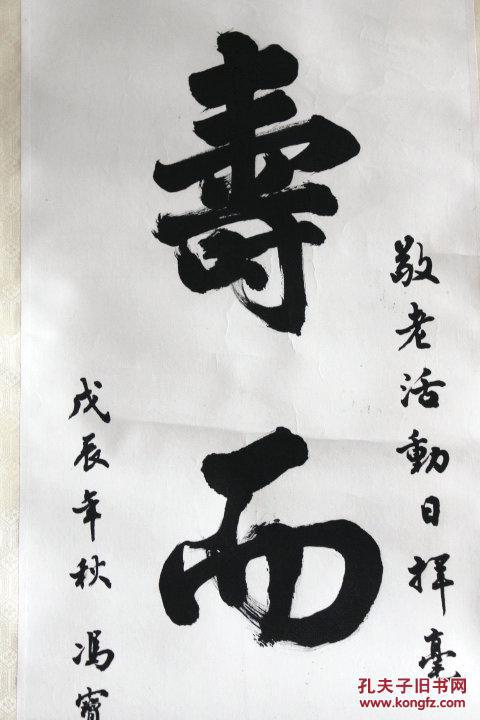 敬老活動日揮毫
壽而
戊辰年秋 馮寶
孔夫子旧书网
www.kongfz.com